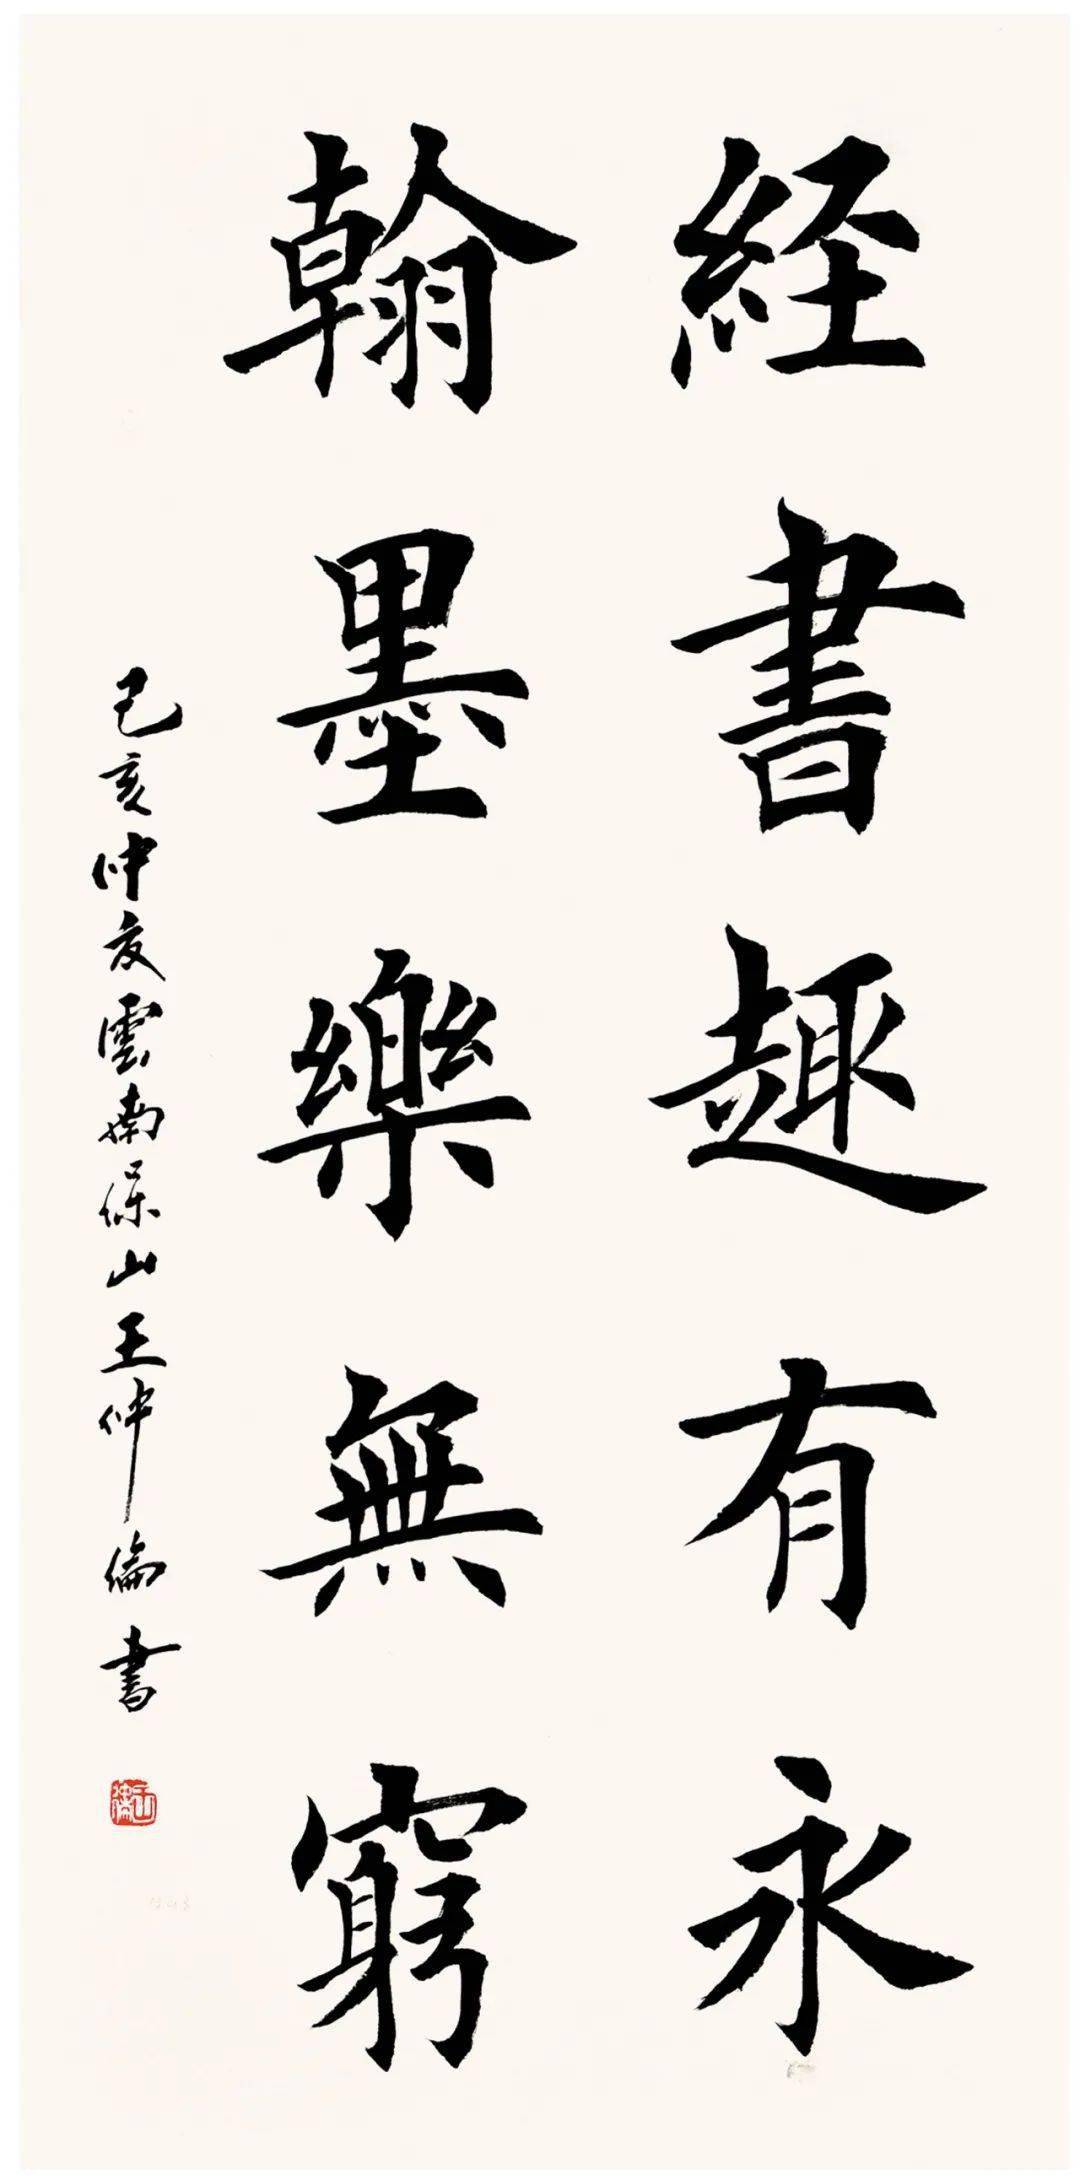 経書趣有永
翰墨樂無窮
己亥仲夏雲南保山王仲倫書